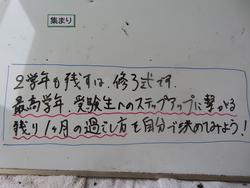 集まり
2学年も残すは、修了式です。
最高学年、受験生へのステップアップに繋がる
残り1ヶ月の過ごし方を自分で決めてみよう!